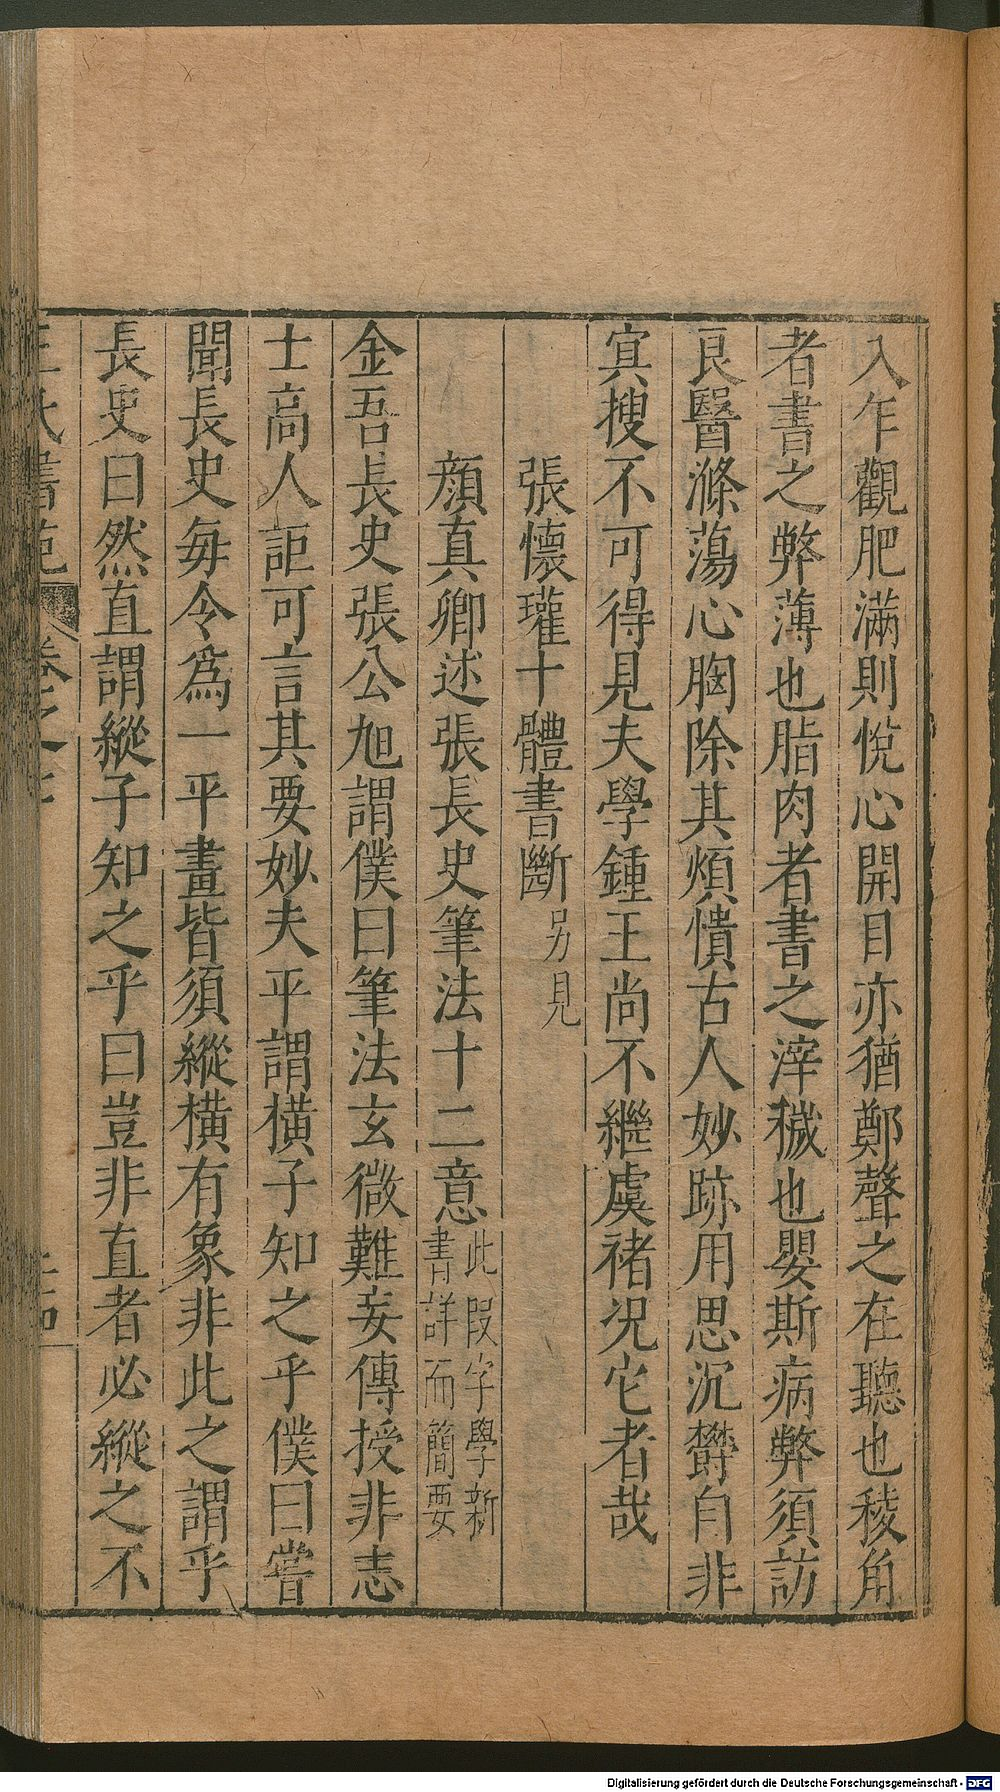 入乍觀肥滿則悅心開目亦猶鄭聲之在聽也稜角
者書之弊薄也脂肉者書之滓穢也嬰斯病弊須訪
良醫滌蕩心胸除其煩憒古人妙跡用思沉欝自非
冥搜不可得見夫學鍾王尚不繼虞褚況它者哉
張懷瓘十體書斷 另見
顏真卿述張長史筆法十二意 此段字學新
書詳而簡要
金吾長史張公旭謂僕曰筆法玄微難妄傳授非志
士高人詎可言其要妙夫平謂橫子知之乎僕曰嘗
聞長史每令為一平畫皆須縱橫有象非此之謂乎
長史曰然直謂縱子知之乎曰豈非直者必縱之不
王氏書苑 卷之
Digitalisierung gefördert durch die Deutsche Forschungsgemeinschaft - DFG